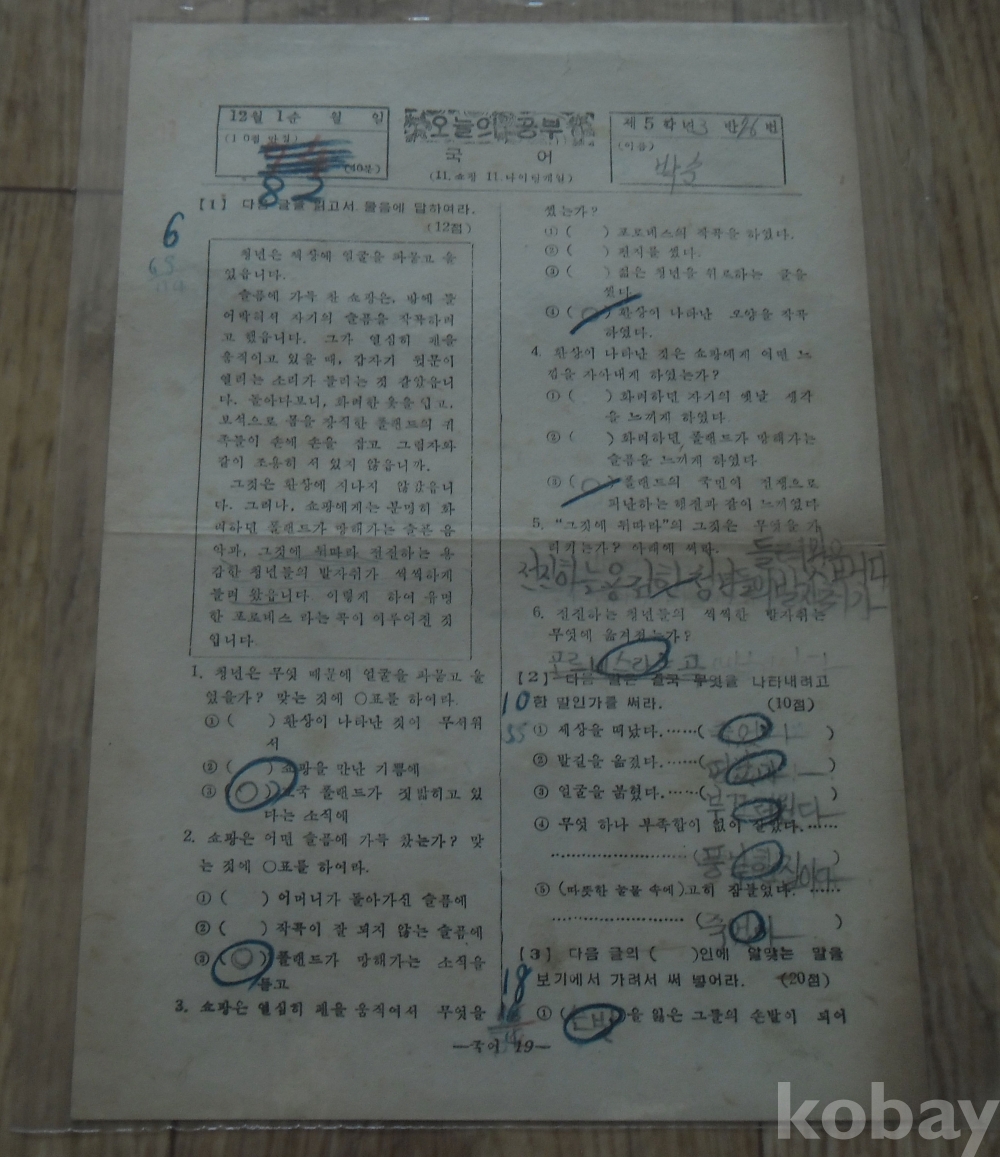 12월 1순 월 일
(40분)
82
오늘의 공부
국 어
(11. 쇼팽 17. 나이팅게일)
제 5 학년 3 반 번
(이름)
박
[1] 다음 글을 읽고서 물음에 답하여라.
(12점)
6
청년은 책상에 얼굴을 파묻고 울
었읍니다.
슬픔에 가득 찬 쇼팽은, 방에 틀
어박혀서 자기의 슬픔을 작곡하려
고 했읍니다. 그가 열심히 펜을
움직이고 있을 때, 갑자기 뒷문이
열리는 소리가 들리는 것 같았읍니
다. 돌아다보니, 화려한 옷을 입고,
보석으로 몸을 장식한 폴랜드의 귀
족들이 손에 손을 잡고 그림자와
같이 조용히 서 있지 않읍니까.
그것은 환상에 지나지 않았읍니
다. 그러나, 쇼팽에게는 분명히 화
려하던 폴랜드가 망해가는 슬픈 음
악과, 그것에 뒤따라 전진하는 용
감한 청년들의 발자취가 씩씩하게
들려 왔읍니다. 이렇게 하여 유명
한 포로네스 라는 곡이 이루어진 것
입니다.
1. 청년은 무엇 때문에 얼굴을 파묻고 울
었을가? 맞는 것에 ○표를 하여라.
① ( ) 환상이 나타난 것이 무서워
서
② ( ) 쇼팽을 만난 기쁨에
③ (○) 조국 폴랜드가 짓밟히고 있
다는 소식에
2. 쇼팽은 어떤 슬픔에 가득 찼는가? 맞
는 것에 ○표를 하여라.
① ( ) 어머니가 돌아가신 슬픔에
② ( ) 작곡이 잘 되지 않는 슬픔에
③ (○) 폴랜드가 망해가는 소식을
듣고
3. 쇼팽은 열심히 펜을 움직여서 무엇을
썼는가?
① ( ) 포로네스의 작곡을 하였다.
② ( ) 편지를 썼다.
③ ( ) 젊은 청년을 위로하는 글을
썼다.
④ (○) 환상이 나타난 모양을 작곡
하였다.
4. 환상이 나타난 것은 쇼팽에게 어떤 느
낌을 자아내게 하였는가?
① ( ) 화려하던 자기의 옛날 생각
을 느끼게 하였다.
② ( ) 화려하던 폴랜드가 망해가는
슬픔을 느끼게 하였다
③ (○) 폴랜드의 국민이 전쟁으로
피난하는 행렬과 같이 느끼었다
5. "그것에 뒤따라"의 그것은 무엇을 가
리키는가? 아래에 써라.
전진하는 용감한 청년들의 발자취가
6. 전진하는 청년들의 씩씩한 발자취는
무엇에 옮겨졌는가?
[2] 다음 말은 결국 무엇을 나타내려고
10 한 말인가를 써라. (10점)
① 세상을 떠났다.……( )
② 발길을 옮겼다.……( )
③ 얼굴을 붉혔다.……( )
④ 무엇 하나 부족함이 없이 살았다.……
( )
⑤ (따뜻한 눈물 속에) 고히 잠들었다.……
( )
[3] 다음 글의 ( )인에 알맞는 말을
18 보기에서 가려서 써 넣어라. (20점)
① ( )을 잃은 그들의 손발이 되어
—국어 19—
kobay